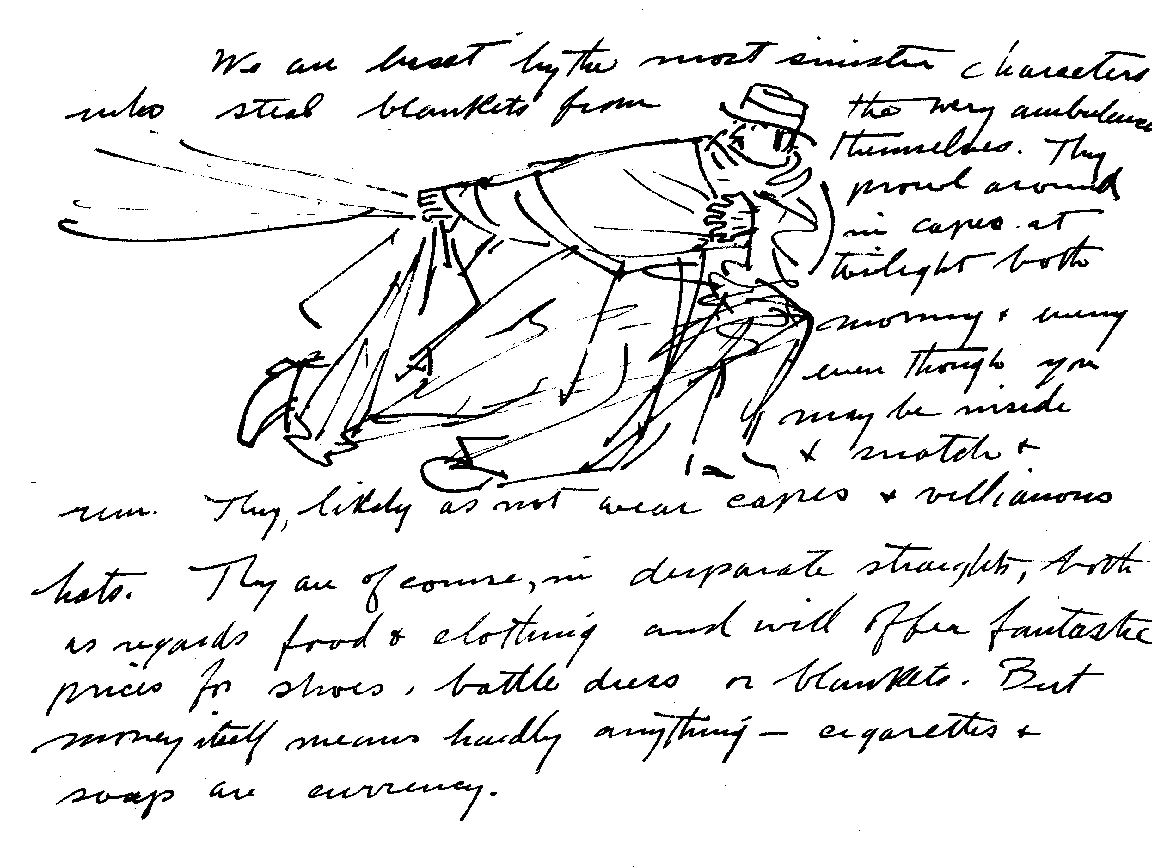 We are beset by the most sinister characters
who steal blankets from the very ambulances
themselves. They
prowl around
in capes at
twilight both
morning & evening
even though you
may be inside
& snatch &
run. They, likely as not wear capes & villianous
hats. They are of course, in desparate straights, both
as regards food & clothing and will offer fantastic
prices for shoes, battle dress or blankets. But
money itself means hardly anything — cigarettes &
soap are currency.